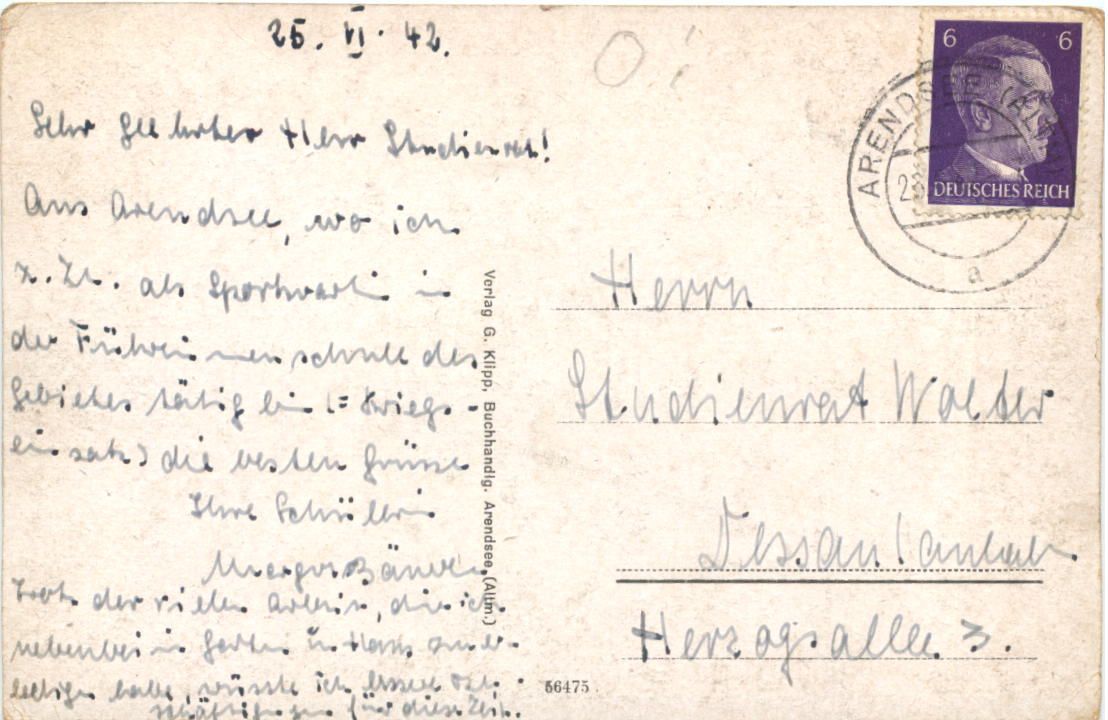 25. VI. 42.
Sehr geehrter Herr Studienrat!
Aus Arendsee, wo ich
z. Zt. als Sportwartin in
der Führerinnenschule des
Gebietes tätig bin (= Kriegs-
einsatz) die besten Grüsse
Ihre Schülerin
Margot
Trotz der vielen Arbeit, die ich
nebenbei in Garten u. Haus zu er-
ledigen habe, wüsste ich bessere
für diese Zeit.
Verlag G. Klipp, Buchhandlg. Arendsee (Altm.)
6 6
DEUTSCHES REICH
ARENDSEE (ALTM)
a
Herrn
Studienrat Walter
Dessau / Anhalt
Herzogsallee 3.
56475